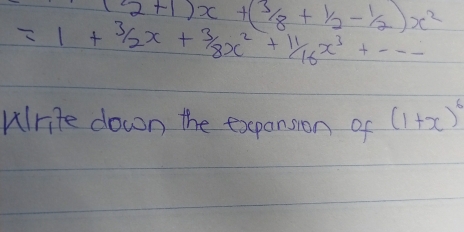 (½+1)x + (3/8 + 1/2 - 1/2)x²
= 1 + 3/2x + 3/8x² + 11/16x³ + ----
Write down the expansion of (1+x)⁶